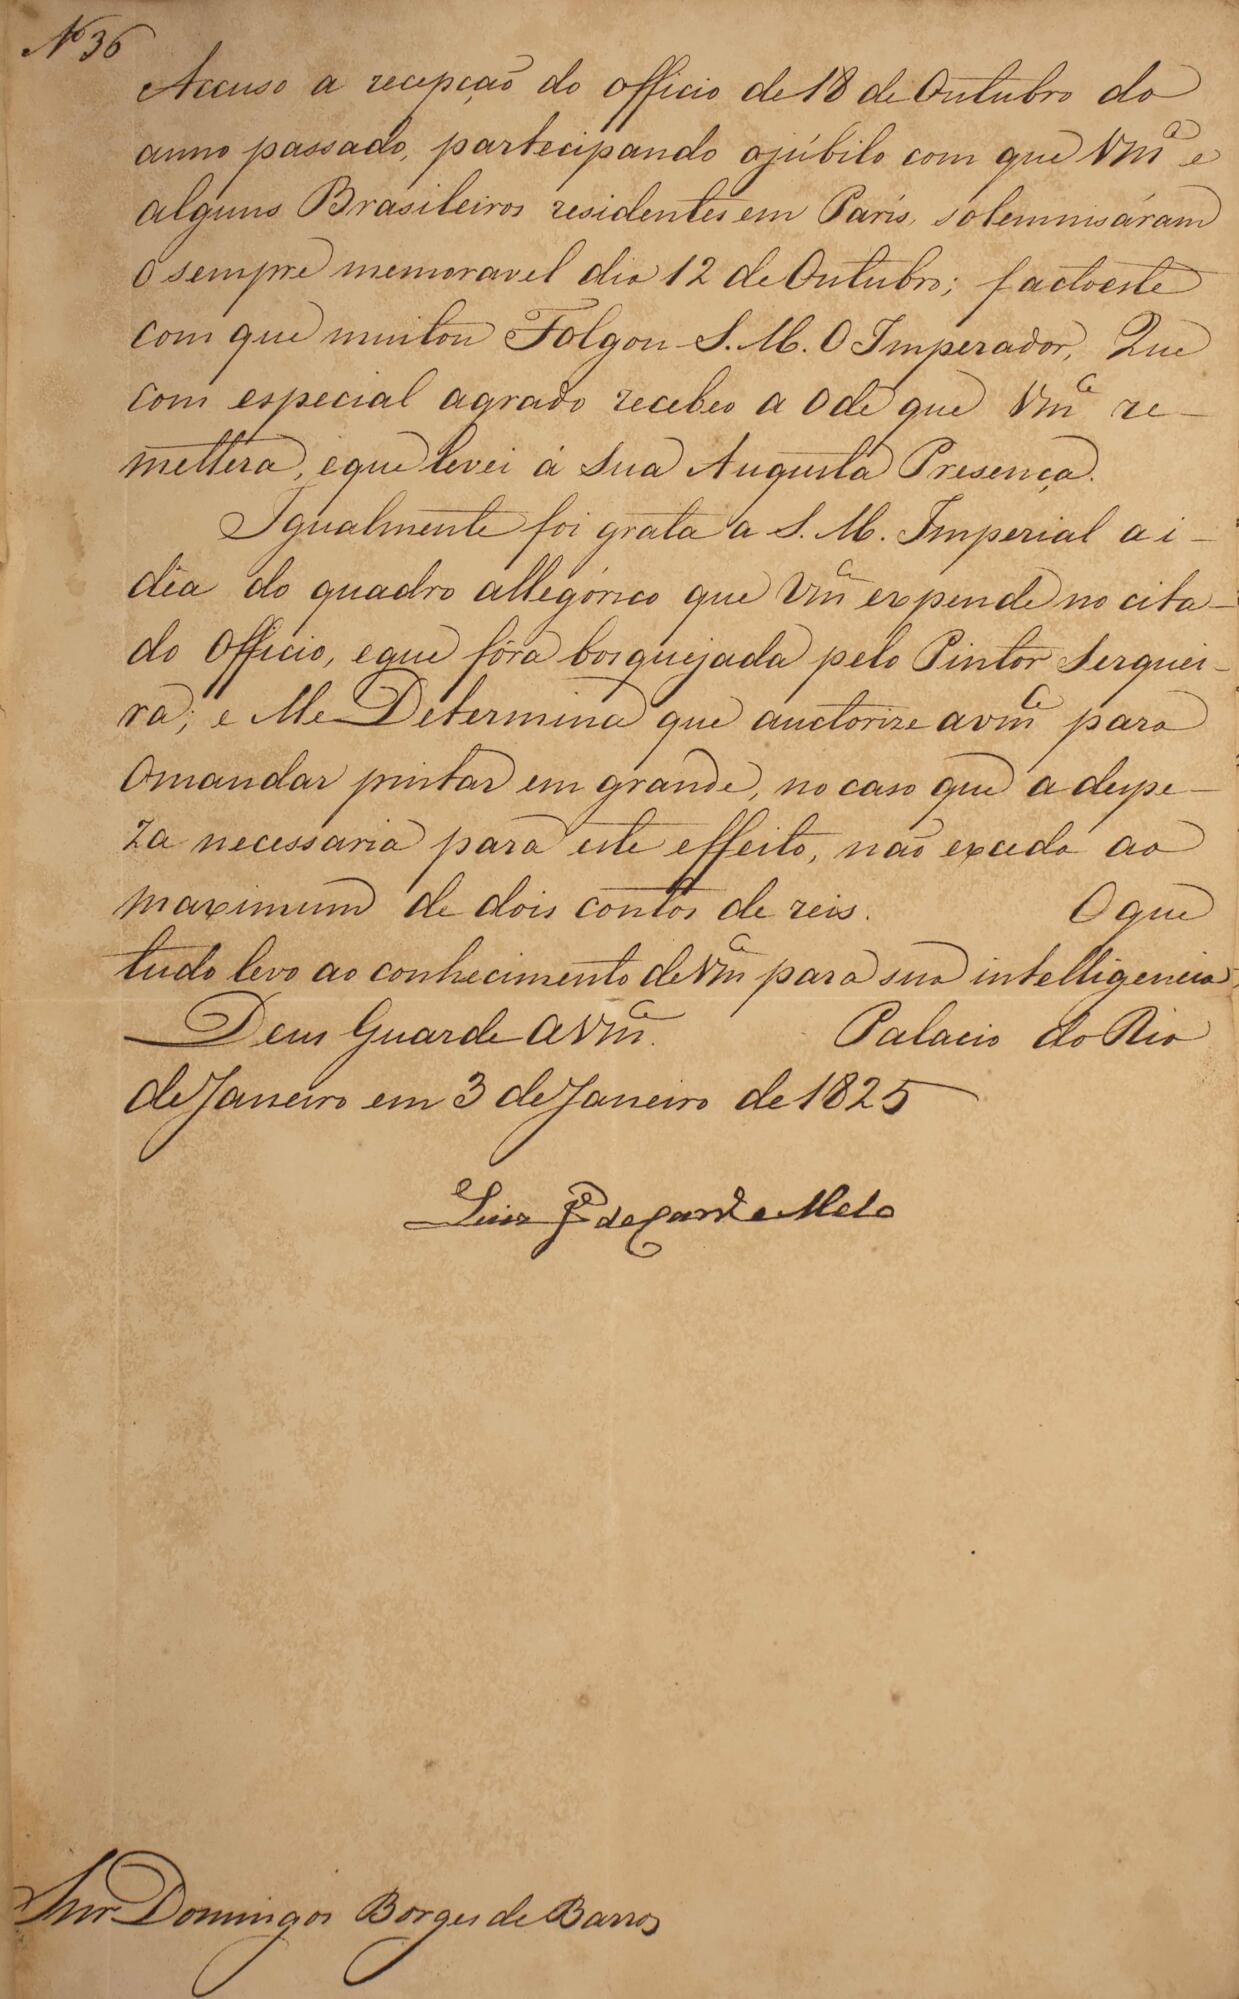 Nº 36
Accuso a recepção do officio de 18 de Outubro do
anno passado, partecipando o júbilo com que Vmce e
alguns Brasileiros residentes em París, solemnisáram
O sempre memoravel dia 12 de Outubro; facto este
com que muito Folgou S. M. O Imperador, Que
com especial agrado recebeo a Ode que Vmce re-
mettera, e que levei á Sua Augusta Presença.
Igualmente foi grata a S. M. Imperial a i-
déa do quadro allegórico que Vmce expende no cita-
do Officio, e que fôra bosquejada pelo Pintor Serquei-
ra; e Me Determina que auctorize a Vmce para
O mandar pintar em grande, no caso que a despe-
za necessaria para este effeito, não exceda ao
maximum de dois contos de reis. O que
tudo levo ao conhecimento de Vmce para sua intelligencia.
Deus Guarde a Vmce. Palacio do Rio
de Janeiro em 3 de Janeiro de 1825
Luiz Je de Carvo e Melo
Snr Domingos Borges de Barros